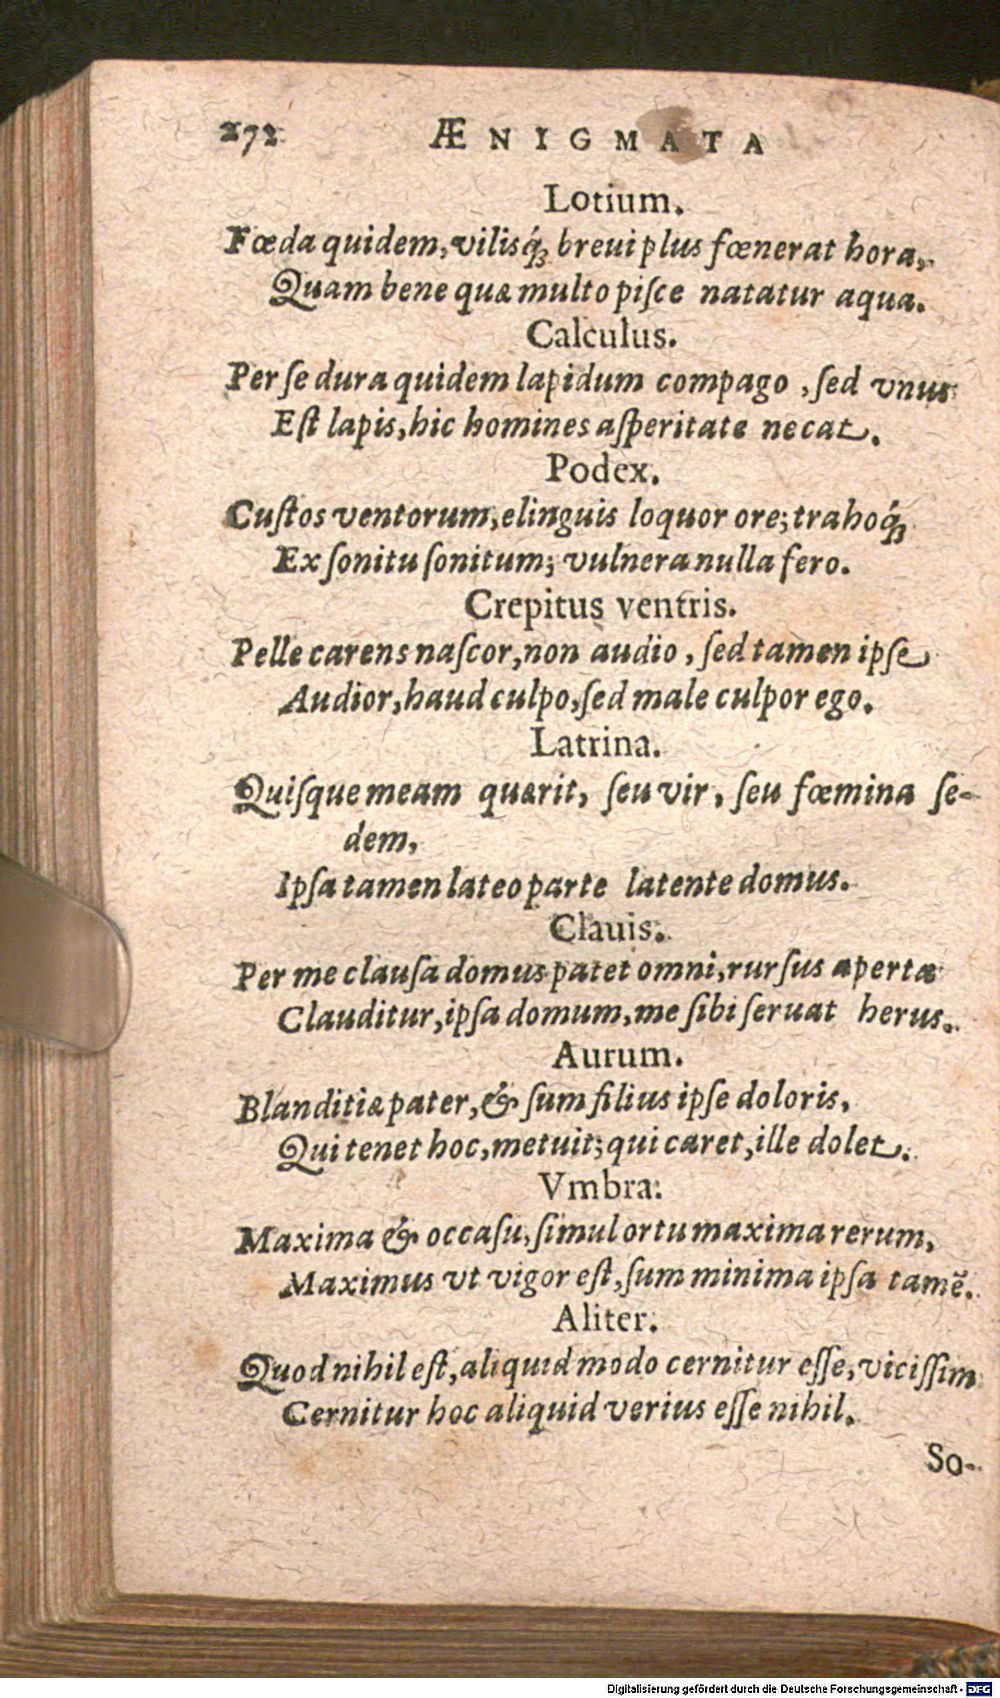 272 ÆNIGMATA
Lotium.
Fœda quidem, vilisq́ꝫ breui plus fœnerat hora,
Quam bene quæ multo piſce natatur aqua.
Calculus.
Per ſe dura quidem lapidum compago, ſed vnus
Eſt lapis, hic homines aſperitate necat.
Podex.
Cuſtos ventorum, elinguis loquor ore; trahoq́ꝫ
Ex ſonitu ſonitum; vulnera nulla fero.
Crepitus ventris.
Pelle carens naſcor, non audio, ſed tamen ipſe
Audior, haud culpo, ſed male culpor ego.
Latrina.
Quiſque meam quærit, ſeu vir, ſeu fœmina ſe-
dem,
Ipſa tamen lateo parte latente domus.
Clauis.
Per me clauſa domus patet omni, rurſus aperta
Clauditur, ipſa domum, me ſibi ſeruat herus.
Aurum.
Blanditiæ pater, & ſum filius ipſe doloris,
Qui tenet hoc, metuit; qui caret, ille dolet.
Vmbra.
Maxima & occaſu, ſimul ortu maxima rerum,
Maximus vt vigor eſt, ſum minima ipſa tamē.
Aliter.
Quod nihil eſt, aliquid modo cernitur eſſe, viciſſim
Cernitur hoc aliquid verius eſſe nihil.
So-
Digitalisierung gefördert durch die Deutsche Forschungsgemeinschaft - DFG